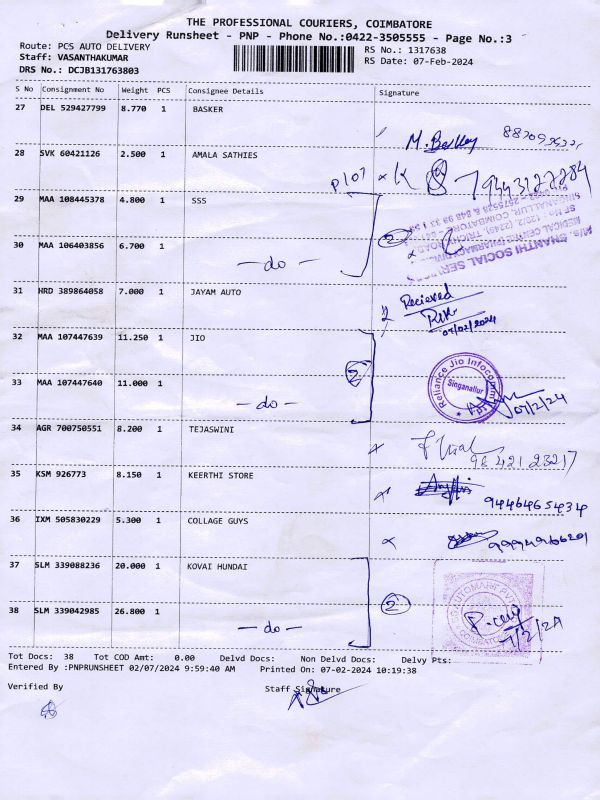 THE PROFESSIONAL COURIERS, COIMBATORE
Delivery Runsheet - PNP - Phone No.:0422-3505555 - Page No.:3
Route: PCS AUTO DELIVERY
RS No.: 1317638
Staff: VASANTHAKUMAR
RS Date: 07-Feb-2024
DRS No.: DCJB131763803
S No Consignment No Weight PCS Consignee Details Signature
27 DEL 529427799 8.770 1 BASKER
28 SVK 60421126 2.500 1 AMALA SATHIES
Plot
29 MAA 108445378 4.800 1 SSS
2
30 MAA 106403856 6.700 1 -do-
31 HRD 389864058 7.000 1 JAYAM AUTO
Recieved
07/02/2024
32 MAA 107447639 11.250 1 JIO
2
Reliance Jio Infocomm
Singanallur
33 MAA 107447640 11.000 1 -do-
07/2/24
34 AGR 700750551 8.200 1 TEJASWINI
98421 23217
35 KSM 926773 8.150 1 KEERTHI STORE
9446465434
36 IXM 505830229 5.300 1 COLLAGE GUYS
37 SLM 339088236 20.000 1 KOVAI HUNDAI
2
38 SLM 339042985 26.800 1 -do-
7/2/24
Tot Docs: 38 Tot COD Amt: 0.00 Delvd Docs: Non Delvd Docs: Delvy Pts:
Entered By :PNPRUNSHEET 02/07/2024 9:59:40 AM Printed On: 07-02-2024 10:19:38
Verified By Staff Signature